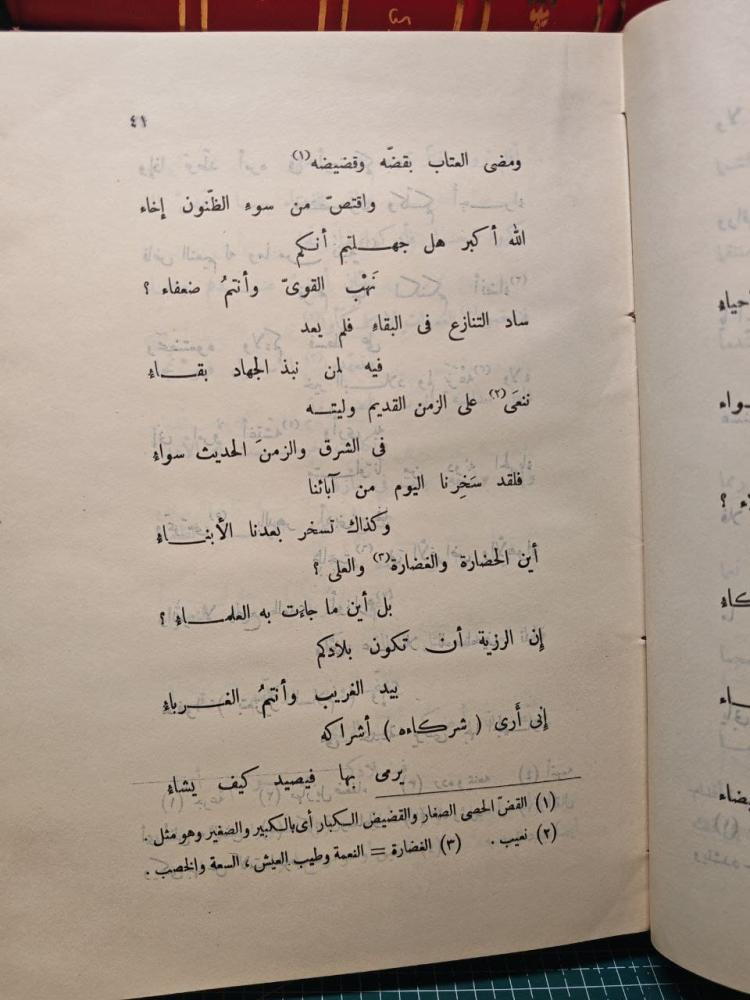 ٤١
ومضى العتاب بقضّه وقضيضه(١)
واقتصّ من سوءِ الظّنون إخاء
الله أكبر هل جهـلـتم أنكم
نَهْب القوىّ وأنتمُ ضعفاء ؟
ساد التنازع فى البقاءِ فلم يعد
فيه لمن نبذ الجهاد بقـاءِ
ننعَى(٢) على الزمن القديم وليتـه
فى الشرق والزمنَ الحديث سواءِ
فلقد سَخِرنا اليوم من آبائنا
وكذاك تسخر بعدنا الأبنـاءِ
أين الحضارة والغضارة(٣) والعلى ؟
بل أين ما جاءَت به العلمـاءِ ؟
إن الرزية أن تكون بلادكم
بيد الغريب وأنتمُ الغـرباءِ
إنى أَرى ( شركاءه ) أشراكه
يرمى بها فيصيد كيف يشاءِ
(١) القضّ الحصى الصغار والقضيض الكبار أى بالكبير والصغير وهو مثل .
(٢) نعيب . (٣) الغضارة = النعمة وطيب العيش ، السعة والخصب .